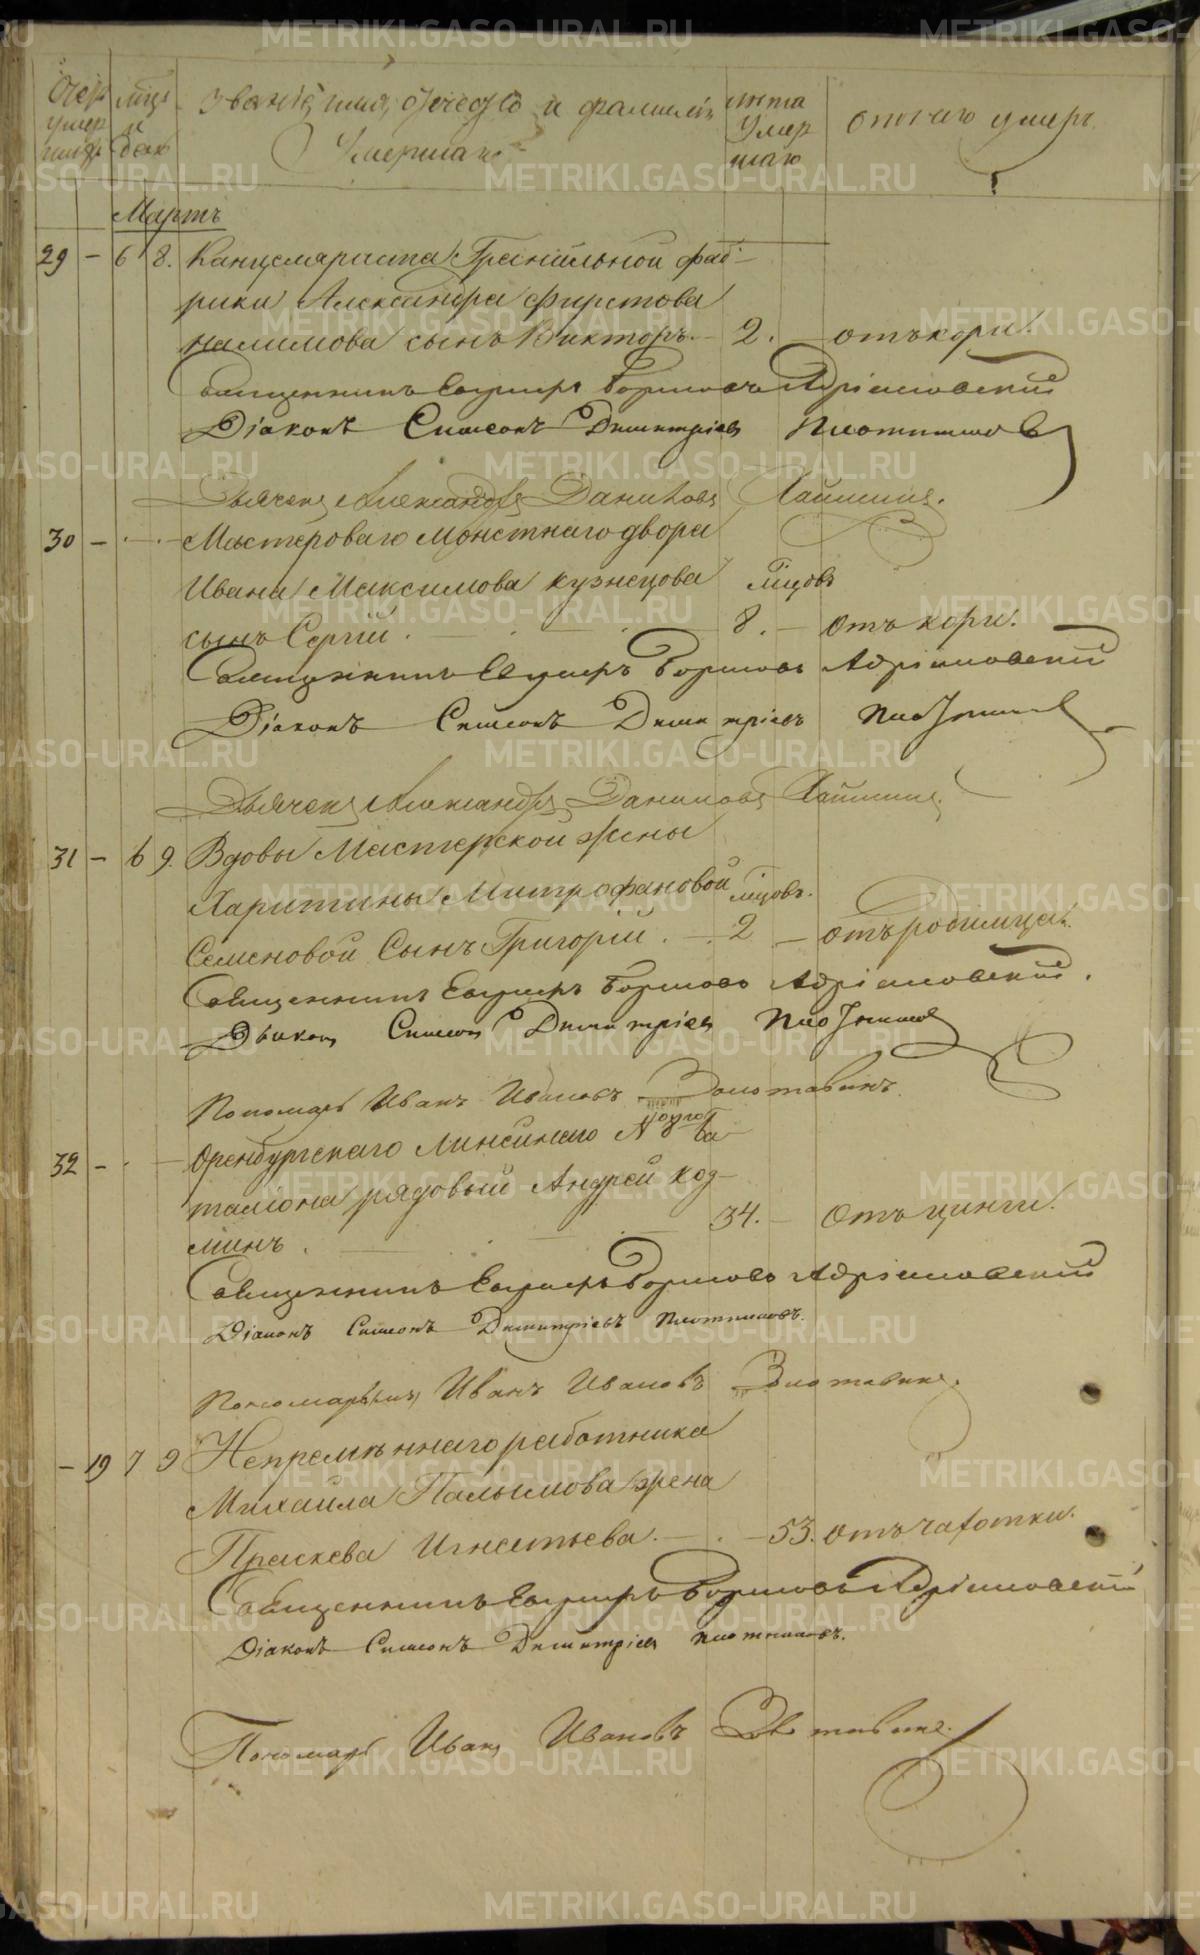 Счетъ умер шихъ
мѣся и день
Званіе, имя, отечество и фамилія
умершаго
лѣта умер шаго
отчего умеръ
Мартъ
29 – 6 8. Канцеляриста Гранильной фаб-
рики Александра Фирстова
Налимова сынъ Викторъ. – 2. – отъ кори.
Священникъ Евѳимъ Борисовъ Адріановскій
Діаконъ Симеонъ Димитріевъ Плотниковъ
Дьячекъ Александръ Даниловъ
30 – · – Мастероваго монетнаго двора
Ивана Максимова Кузнецова мѣсяцовъ
сынъ Сергій. – 8. – отъ кори.
Священникъ Борисовъ Адріановскій
Діаконъ Симеонъ Димитріевъ Плотниковъ
Дьячекъ Александръ Даниловъ
31 – 6 9. Вдовы Мастерской жены
Харитины Митрофановой мѣсяцовъ.
Семеновой Сынъ Григорій. – 2 – отъ родимца.
Священникъ Борисовъ Адріановскій.
Діаконъ Симеонъ Димитріевъ Плотниковъ
Пономарь Иванъ Ивановъ Золотавинъ.
32 – · – Оренбургскаго Линейнаго № 8го ба-
таліона рядовый Андрей Код-
минъ. – 34. – Отъ цинги.
Священникъ Борисовъ Адріановскій
Діаконъ Симеонъ Димитріевъ Плотниковъ.
Пономарь Иванъ Ивановъ Золотавинъ.
– 19 7 9 Непремѣннаго работника
Михаила Палымова жена
Праскева Игнатьева. – 53. отъ чахотки.
Священникъ Борисовъ Адріановскій
Діаконъ Симеонъ Димитріевъ Плотниковъ.
Пономарь Иванъ Ивановъ Золотавинъ.
METRIKI.GASO-URAL.RU